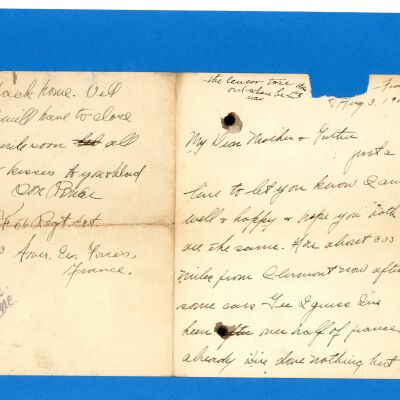 back home. Well
will have to close
write soon all
kisses to you
Son
F 66 Regt Art
Amer. Ex. Forces,
France.
the censor tore the
out where he
was
Aug 3, 19
My Dear Mother &
just a
line to let you know I am
well & happy & hope you both
are the same. Are about 300
miles from Clermont now after
some cars Gee I guess I've
been over half of france
already I've done nothing but